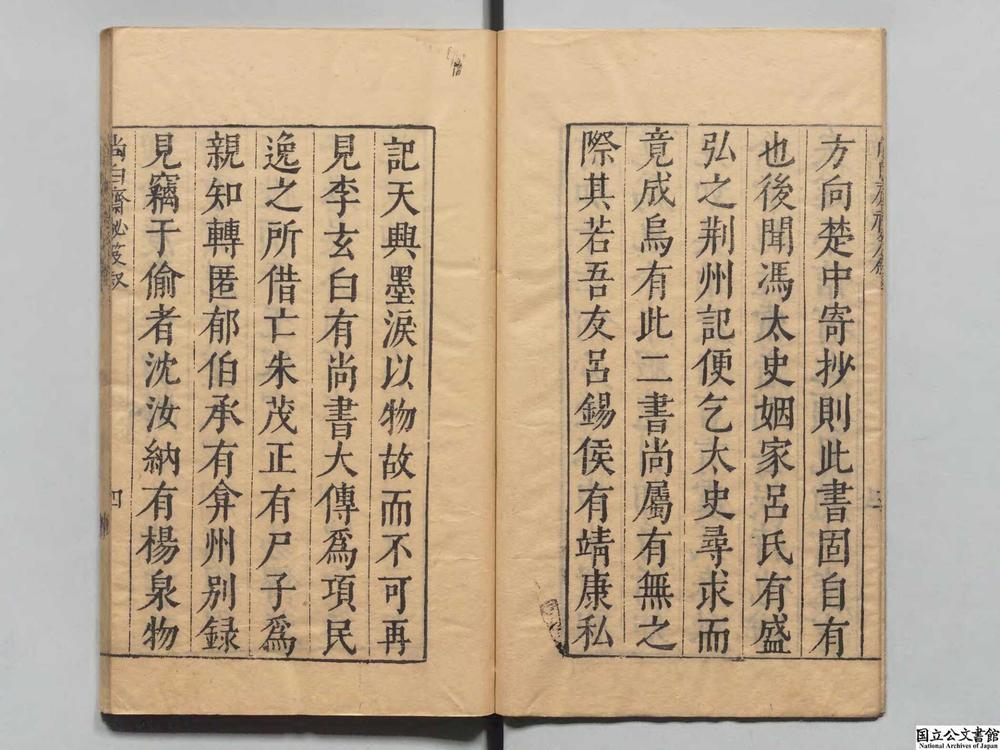 方向楚中寄抄則此書固自有
也後聞馮太史姻家呂氏有盛
弘之荆州記便乞太史尋求而
竟成烏有此二書尚屬有無之
際其若吾友呂錫侯有靖康私
記天興墨淚以物故而不可再
見李玄白有尚書大傳爲項民
逸之所借亡朱茂正有尸子爲
親知轉匿郁伯承有弇州别録
見竊于偷者沈汝納有楊泉物
尚白齋秘笈叙
四
国立公文書館
National Archives of Japan